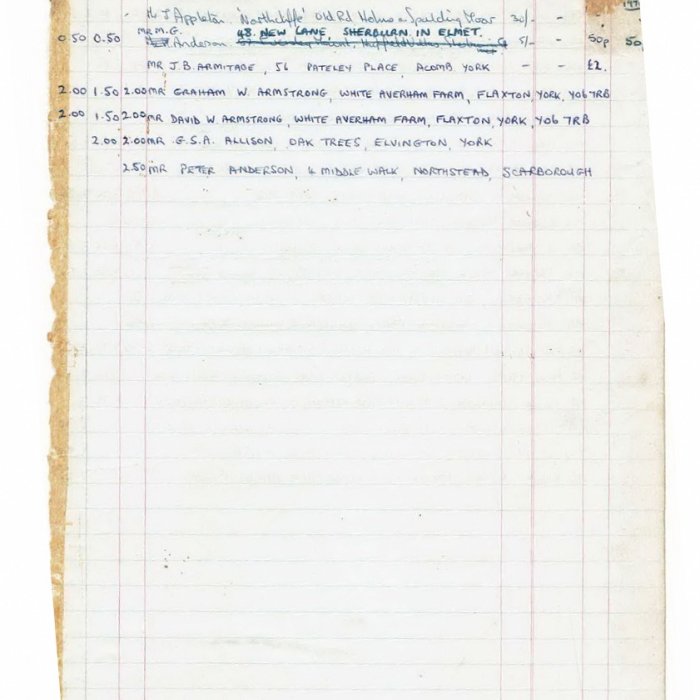 Mr J Appleton 'Northcliffe' Old Rd Holme on Spalding Moor 30/- -
0.50 0.50 MR M.G. Anderson 48 NEW LANE, SHERBURN IN ELMET. 5/- - 50p 50
MR J.B. ARMITAGE, 56 PATELEY PLACE, ACOMB YORK - - £2.
2.00 1.50 2.00 MR GRAHAM W. ARMSTRONG, WHITE AVERHAM FARM, FLAXTON, YORK, YO6 7RB
2.00 1.50 2.00 MR DAVID W. ARMSTRONG, WHITE AVERHAM FARM, FLAXTON, YORK, YO6 7RB
2.00 2.00 MR G.S.A. ALLISON, OAK TREES, ELVINGTON, YORK
2.50 MR PETER ANDERSON, 4 MIDDLE WALK, NORTHSTEAD, SCARBOROUGH